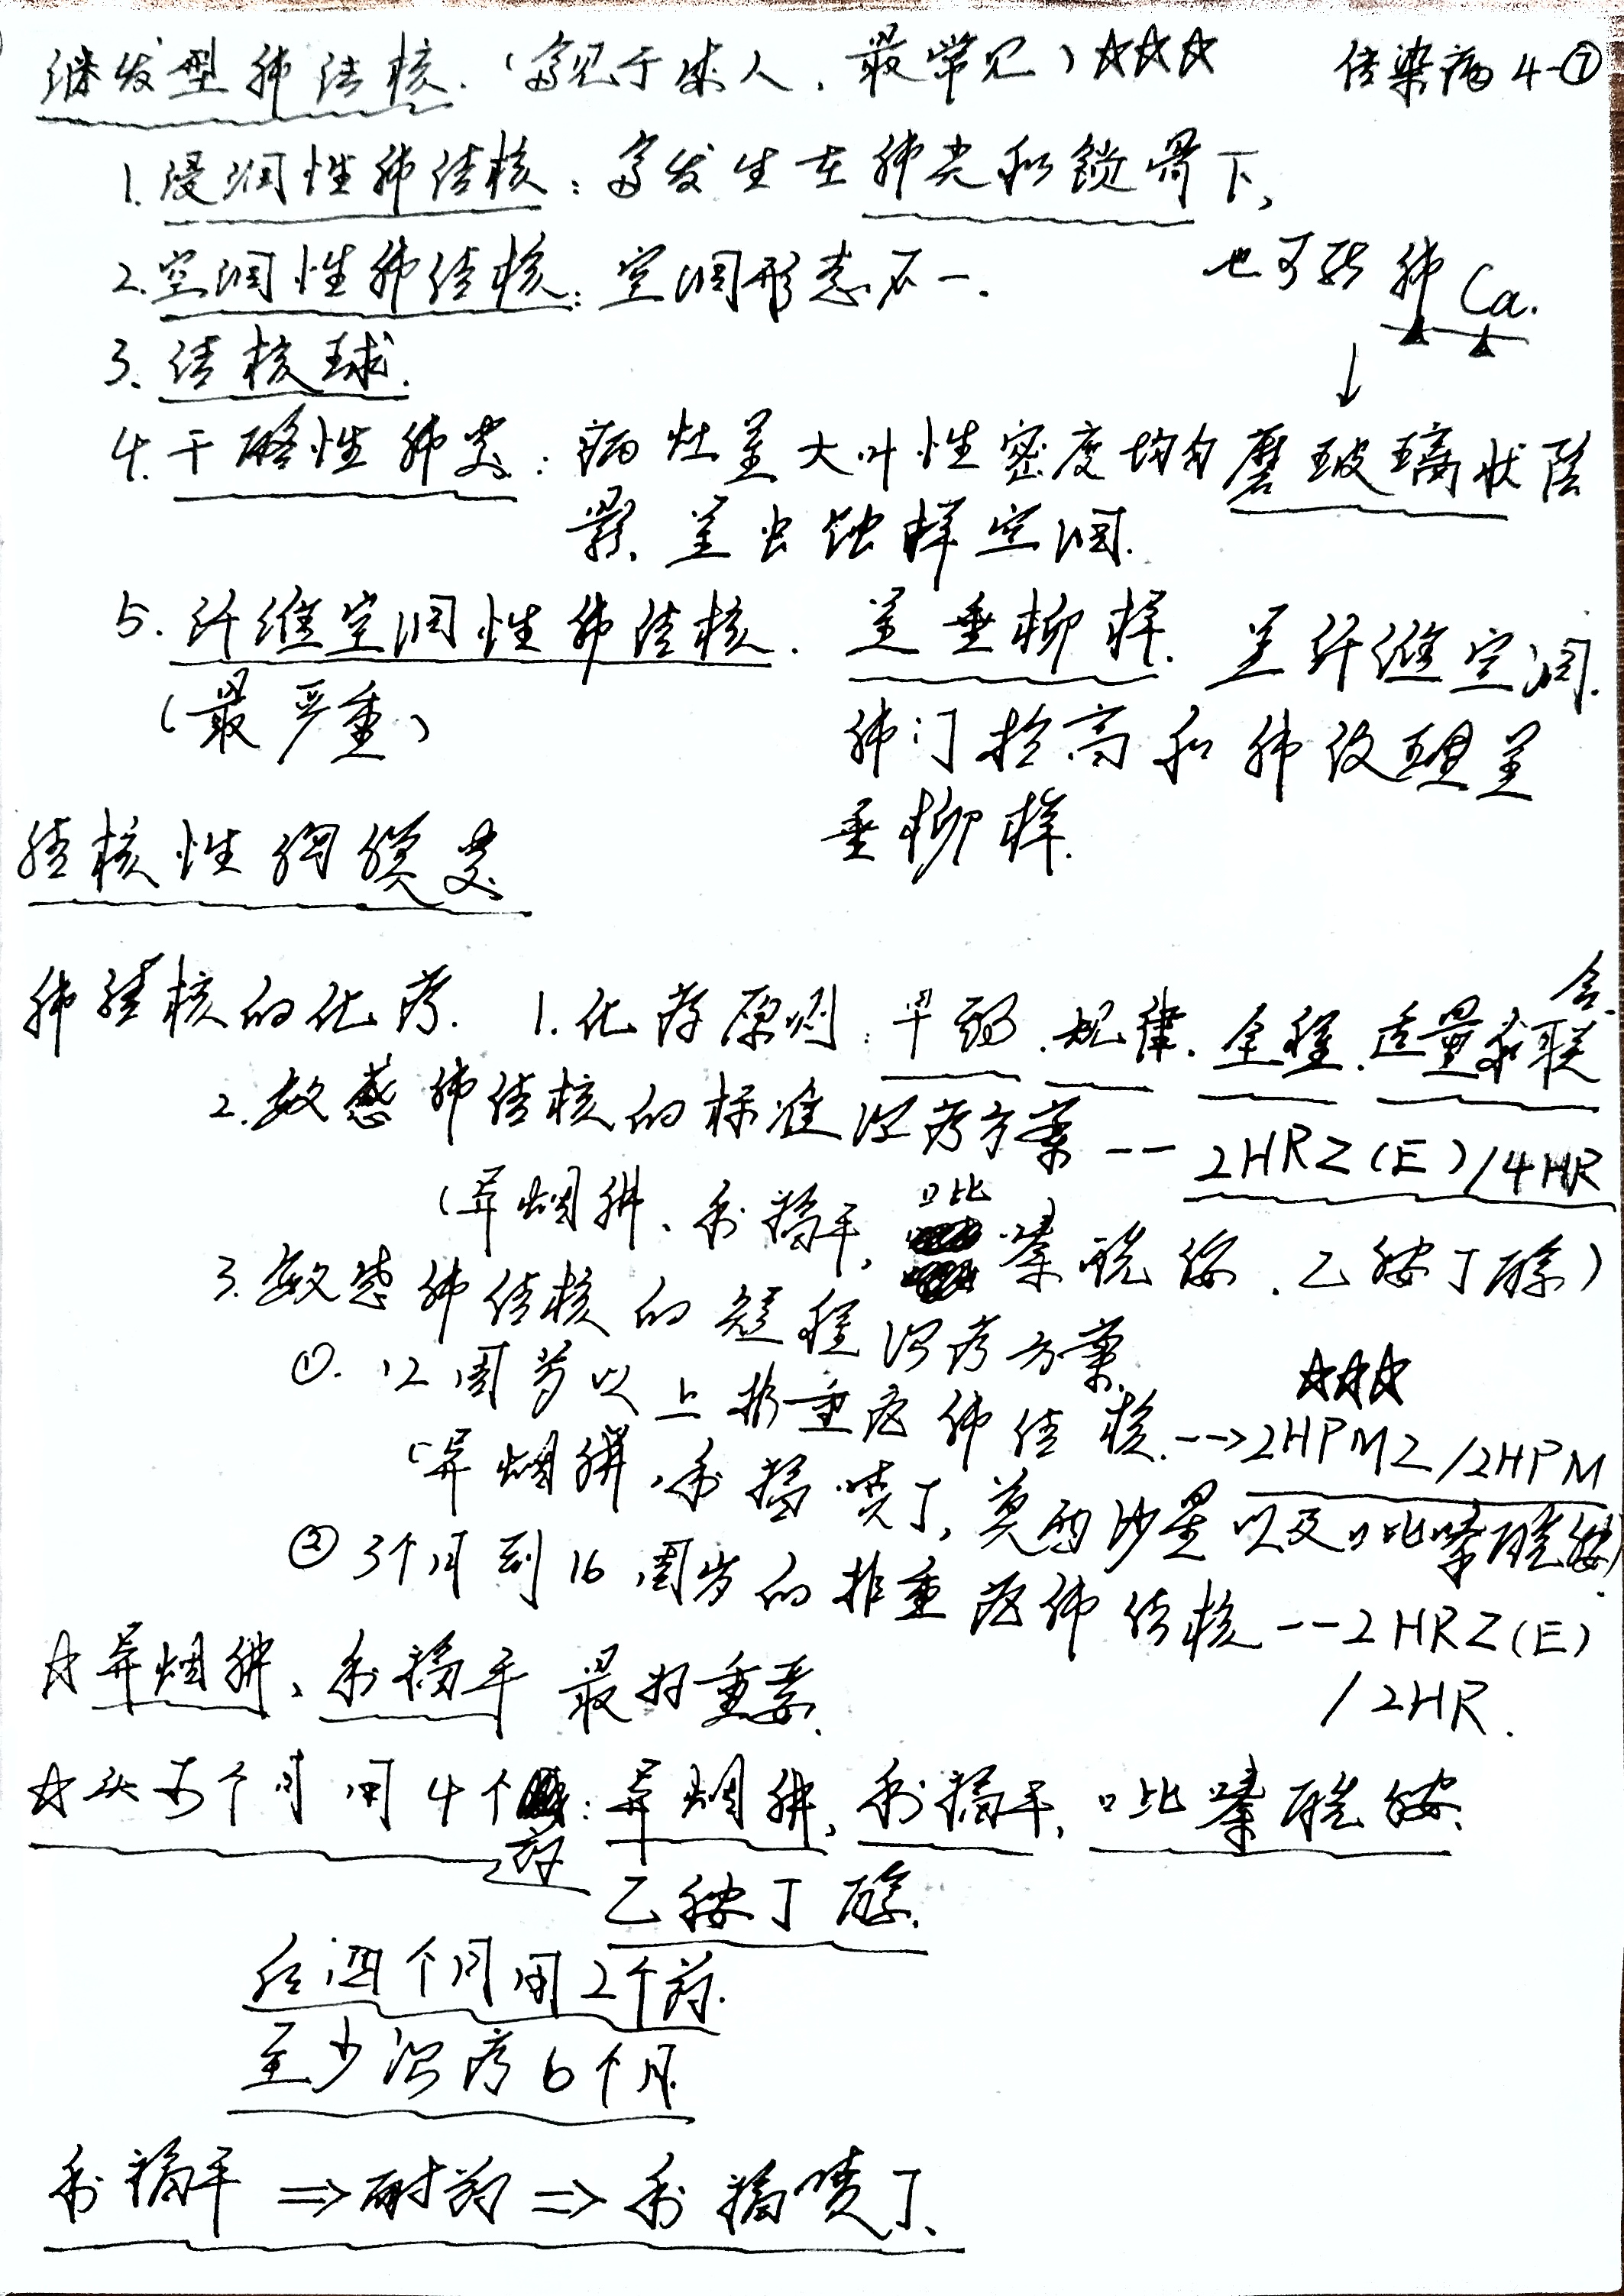 继发型肺结核.（多见于成人、最常见）☆☆☆
传染病4-⑦
1.浸润性肺结核：多发生在肺尖和锁骨下、
2.空洞性肺结核：空洞形态不一.
也可能肺Ca.
↓
3、结核球.
4.干酪性肺炎：病灶呈大叶性密度均匀磨玻璃状阴
影、呈虫蚀样空洞.
5.纤维空洞性肺结核.呈垂柳样.呈纤维空洞.
（最严重）
肺门抬高和肺纹理呈
垂柳样.
结核性胸膜炎
肺结核的化疗.1.化疗原则：早期、规律、全程、适量和联合.
2.敏感肺结核的标准治疗方案--2HRZ(E)/4HR
（异烟肼、利福平、吡嗪酰胺、乙胺丁醇）
3.敏感肺结核的短程治疗方案.
☆☆☆
①.12周岁以上非重症肺结核.-->2HPMZ/2HPM
（异烟肼、利福喷丁、莫西沙星以及吡嗪酰胺）
②3个月到16周岁的非重症肺结核--2HRZ(E)
/2HR.
☆异烟肼、利福平最为重要.
☆头两个月用4个药：异烟肼、利福平、吡嗪酰胺、
乙胺丁醇.
后四个月用2个药.
至少治疗6个月.
利福平⇒耐药⇒利福喷丁、